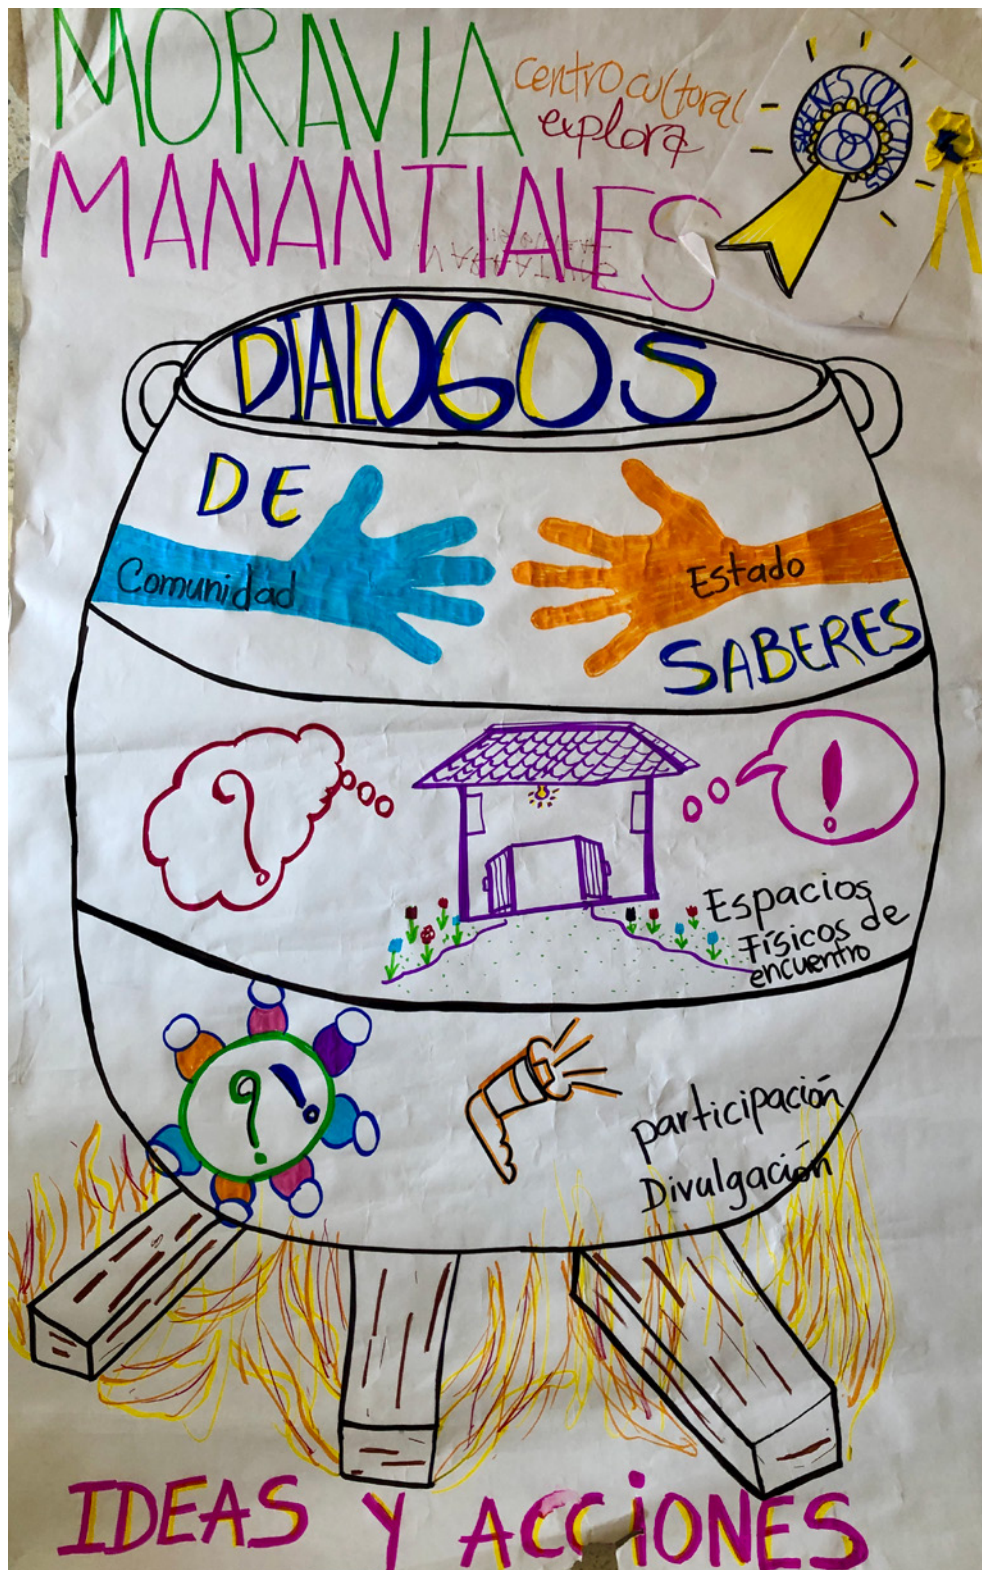 MORAVIA
centro cultoral
explora
MANANTIALES
SABERES COLECTIVOS
DIALOGOS
DE
Comunidad
Estado
SABERES
?
!
Espacios
Físicos de
encuentro
? !
participación
Divulgación
IDEAS Y ACCiONES